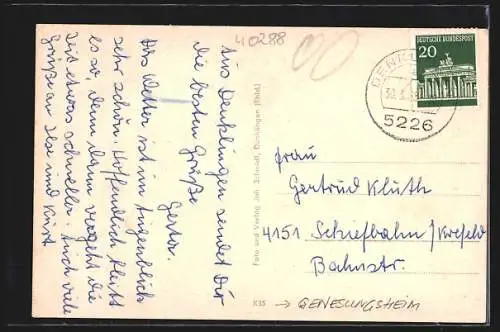 40288
Aus Denklingen sendet Dir
die besten Grüße
Gerta.
Das Wetter ist im Augenblick
sehr schön. Hoffendlich bleibt
es so, denn dann vergeht die
Zeit etwas schneller. Auch viele
Grüße an Ilse und Kurt
Foto und Verlag Joh. Schmidt, Denklingen (Rhld.)
K35
DEUTSCHE BUNDESPOST
20
DENK
5226
Frau
Gertrud Kluth
4151 Schiefbahn/Krefeld
Bahnstr.
→ GENESUNGSHEIM